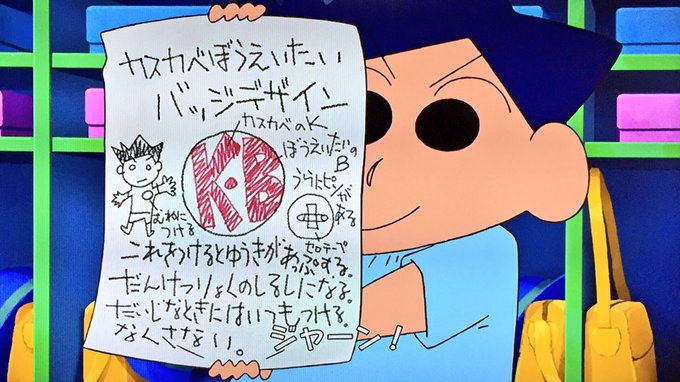 カスカベぼうえいたい
バッジデザイン
カスカベのK
ぼうえいたいのB
K・B
うらにピンがある
むねにつける
セロテープ
これをつけるとゆうきがあっぷする。
だんけつりょくのしるしになる。
だいじなときにはいつもつける。
なくさない。
ジャーン!!